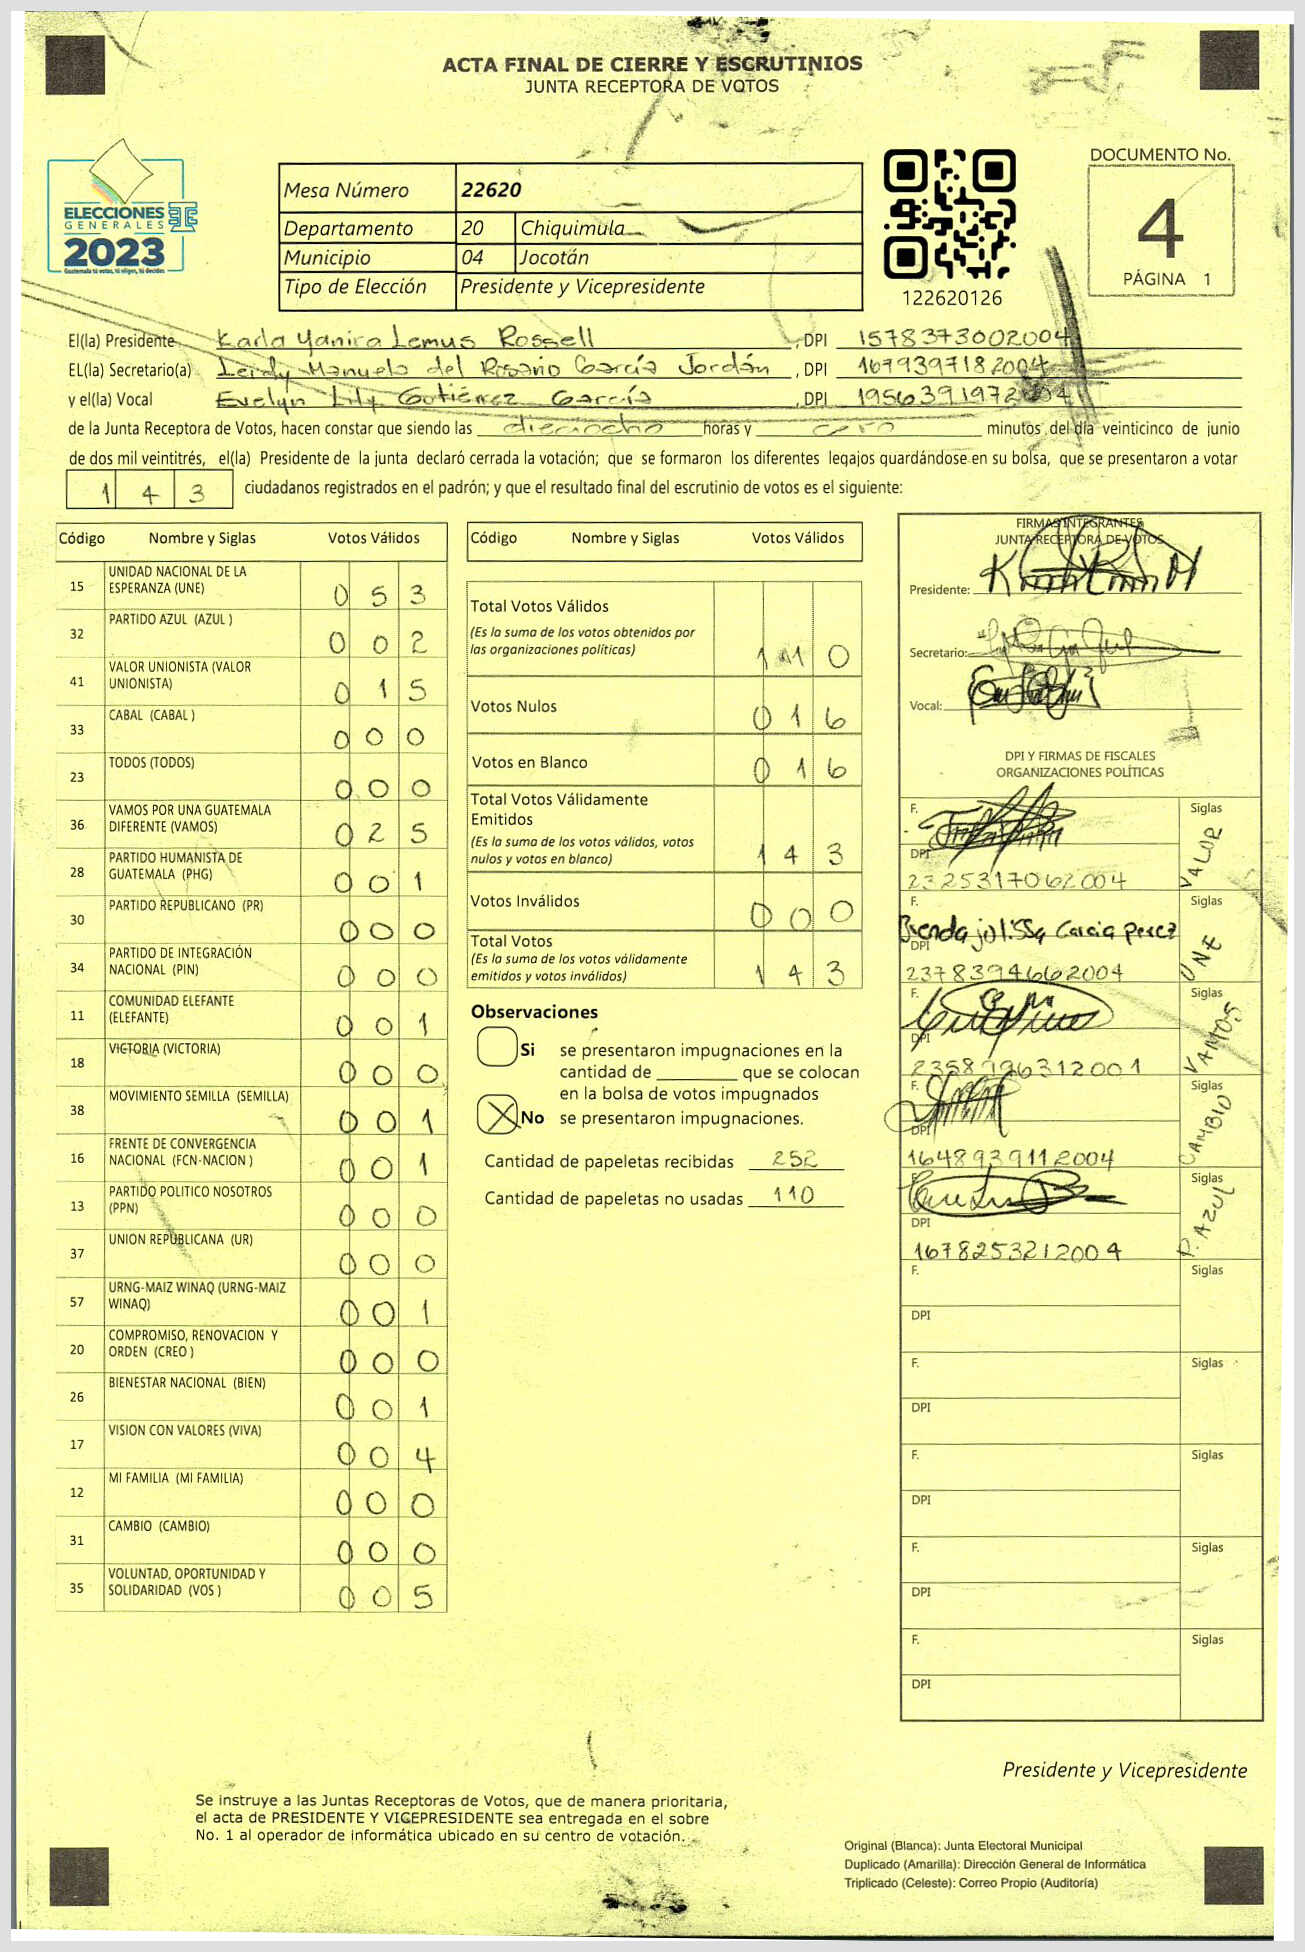 ACTA FINAL DE CIERRE Y ESCRUTINIOS
JUNTA RECEPTORA DE VOTOS
ELECCIONES
GENERALES
2023
Guatemala tú votas, tú eliges, tú decides
Mesa Número 22620
Departamento 20 Chiquimula
Municipio 04 Jocotán
Tipo de Elección Presidente y Vicepresidente
122620126
DOCUMENTO No.
4
PÁGINA 1
El(la) Presidente Karla Yanira Lemus Rossell , DPI 1578373002004
EL(la) Secretario(a) Leidy Manuela del Rosario García Jordán , DPI 1679397182004
y el(la) Vocal Evelyn Lily Gutiérrez García , DPI 1956391972004
de la Junta Receptora de Votos, hacen constar que siendo las dieciocho horas y cero minutos del día veinticinco de junio
de dos mil veintitrés, el(la) Presidente de la junta declaró cerrada la votación; que se formaron los diferentes legajos guardándose en su bolsa, que se presentaron a votar
1 4 3 ciudadanos registrados en el padrón; y que el resultado final del escrutinio de votos es el siguiente:
Código Nombre y Siglas Votos Válidos
15 UNIDAD NACIONAL DE LA ESPERANZA (UNE) 0 5 3
32 PARTIDO AZUL (AZUL ) 0 0 2
41 VALOR UNIONISTA (VALOR UNIONISTA) 0 1 5
33 CABAL (CABAL ) 0 0 0
23 TODOS (TODOS) 0 0 0
36 VAMOS POR UNA GUATEMALA DIFERENTE (VAMOS) 0 2 5
28 PARTIDO HUMANISTA DE GUATEMALA (PHG) 0 0 1
30 PARTIDO REPUBLICANO (PR) 0 0 0
34 PARTIDO DE INTEGRACIÓN NACIONAL (PIN) 0 0 0
11 COMUNIDAD ELEFANTE (ELEFANTE) 0 0 1
18 VICTORIA (VICTORIA) 0 0 0
38 MOVIMIENTO SEMILLA (SEMILLA) 0 0 1
16 FRENTE DE CONVERGENCIA NACIONAL (FCN-NACION ) 0 0 1
13 PARTIDO POLITICO NOSOTROS (PPN) 0 0 0
37 UNION REPUBLICANA (UR) 0 0 0
57 URNG-MAIZ WINAQ (URNG-MAIZ WINAQ) 0 0 1
20 COMPROMISO, RENOVACION Y ORDEN (CREO ) 0 0 0
26 BIENESTAR NACIONAL (BIEN) 0 0 1
17 VISION CON VALORES (VIVA) 0 0 4
12 MI FAMILIA (MI FAMILIA) 0 0 0
31 CAMBIO (CAMBIO) 0 0 0
35 VOLUNTAD, OPORTUNIDAD Y SOLIDARIDAD (VOS ) 0 0 5
Código Nombre y Siglas Votos Válidos
Total Votos Válidos
(Es la suma de los votos obtenidos por
las organizaciones políticas) 1 1 0
Votos Nulos 0 1 6
Votos en Blanco 0 1 6
Total Votos Válidamente
Emitidos
(Es la suma de los votos válidos, votos
nulos y votos en blanco) 1 4 3
Votos Inválidos 0 0 0
Total Votos
(Es la suma de los votos válidamente
emitidos y votos inválidos) 1 4 3
Observaciones
Si se presentaron impugnaciones en la
cantidad de que se colocan
en la bolsa de votos impugnados
X No se presentaron impugnaciones.
Cantidad de papeletas recibidas 252
Cantidad de papeletas no usadas 110
FIRMAS INTEGRANTES
JUNTA RECEPTORA DE VOTOS
Presidente:
Secretario:
Vocal:
DPI Y FIRMAS DE FISCALES
ORGANIZACIONES POLÍTICAS
F. Siglas
DPI VALOR
2325317062004
F. Siglas
Brenda julissa Garcia perez
DPI UNE
2378394662004
F. Siglas
DPI VAMOS
2358996312001
F. Siglas
DPI CAMBIO
1648939112004
Siglas
DPI P. AZUL
1678253212004
F. Siglas
DPI
F. Siglas
DPI
F. Siglas
DPI
F. Siglas
DPI
F. Siglas
DPI
Presidente y Vicepresidente
Se instruye a las Juntas Receptoras de Votos, que de manera prioritaria,
el acta de PRESIDENTE Y VICEPRESIDENTE sea entregada en el sobre
No. 1 al operador de informática ubicado en su centro de votación.
Original (Blanca): Junta Electoral Municipal
Duplicado (Amarilla): Dirección General de Informática
Triplicado (Celeste): Correo Propio (Auditoría)